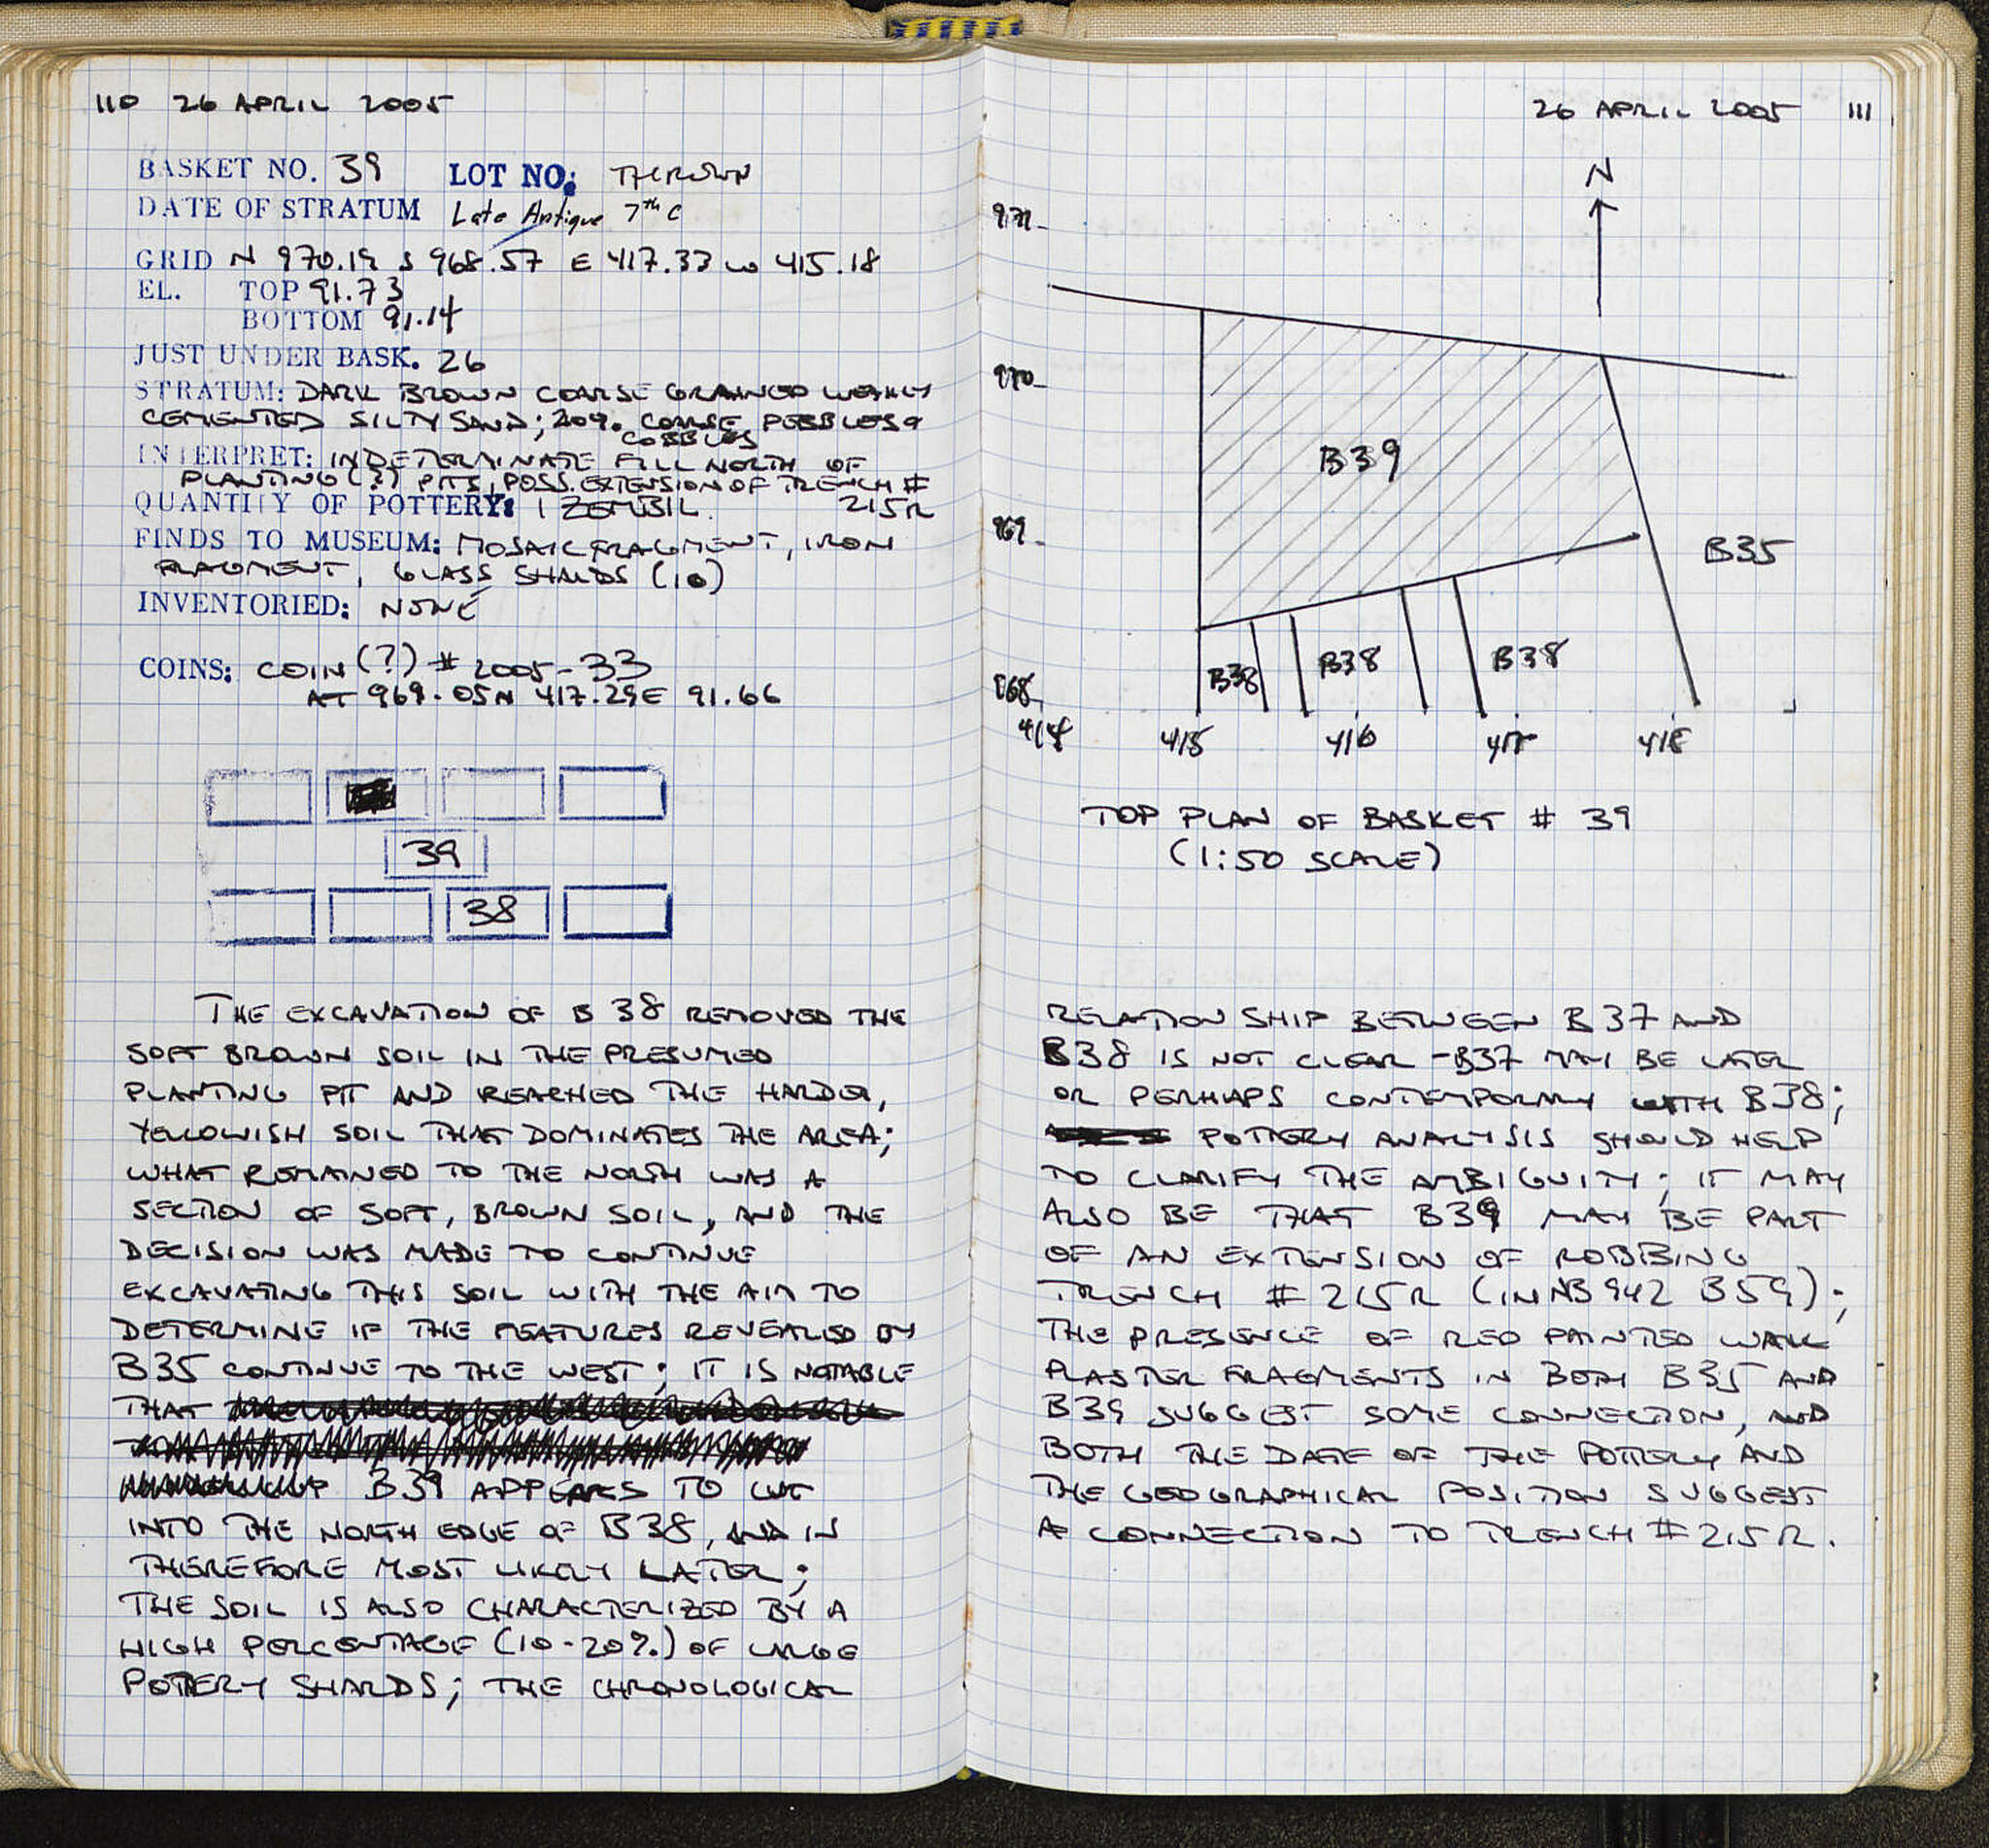 110 26 APRIL 2005
BASKET NO. 39 LOT NO: THROWN
DATE OF STRATUM Late Antique 7th C
GRID N 970.19 S 968.57 E 417.33 W 415.18
EL. TOP 91.73
BOTTOM 91.14
JUST UNDER BASK. 26
STRATUM: DARK BROWN COARSE GRAINED WEAKLY
CEMENTED SILTY SAND; 20%. COARSE PEBBLES &
COBBLES
INTERPRET: INDETERMINATE FILL NORTH OF
PLANTING (?) PITS, POSS. EXTENSION OF TRENCH #
QUANTITY OF POTTERY: 1 ZEMBIL. 215R
FINDS TO MUSEUM: MOSAIC FRAGMENT, IRON
FRAGMENT, GLASS SHARDS (10)
INVENTORIED: NONE
COINS: COIN (?) # 2005-33
AT 969.05N 417.29E 91.66
39
38
THE EXCAVATION OF B 38 REMOVED THE
SOFT BROWN SOIL IN THE PRESUMED
PLANTING PIT AND REACHED THE HARDER,
YELLOWISH SOIL THAT DOMINATES THE AREA;
WHAT REMAINED TO THE NORTH WAS A
SECTION OF SOFT, BROWN SOIL, AND THE
DECISION WAS MADE TO CONTINUE
EXCAVATING THIS SOIL WITH THE AIM TO
DETERMINE IF THE FEATURES REVEALED BY
B35 CONTINUE TO THE WEST; IT IS NOTABLE
THAT
B39 APPEARS TO CUT
INTO THE NORTH EDGE OF B38, AND IS
THEREFORE MOST LIKELY LATER;
THE SOIL IS ALSO CHARACTERIZED BY A
HIGH PERCENTAGE (10-20%.) OF LARGE
POTTERY SHARDS; THE CHRONOLOGICAL
26 APRIL 2005 111
N
971
970
B39
969
B35
B38 B38 B38
968
414 415 416 417 418
TOP PLAN OF BASKET # 39
(1:50 SCALE)
RELATIONSHIP BETWEEN B37 AND
B38 IS NOT CLEAR - B37 MAY BE LATER
OR PERHAPS CONTEMPORARY WITH B38;
POTTERY ANALYSIS SHOULD HELP
TO CLARIFY THE AMBIGUITY; IT MAY
ALSO BE THAT B39 MAY BE PART
OF AN EXTENSION OF ROBBING
TRENCH # 215R (IN NB 942 B59);
THE PRESENCE OF RED PAINTED WALL
PLASTER FRAGMENTS IN BOTH B35 AND
B39 SUGGEST SOME CONNECTION, AND
BOTH THE DATE OF THE POTTERY AND
THE GEOGRAPHICAL POSITION SUGGEST
A CONNECTION TO TRENCH # 215R.